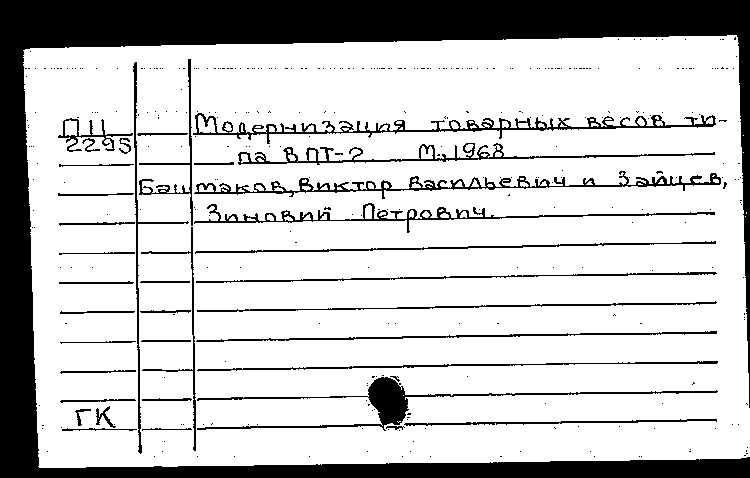 П11
2295
Модернизация товарных весов ти-
па ВПТ-2 М., 1968
Башмаков, Виктор Васильевич и Зайцев,
Зиновий Петрович.
ГК